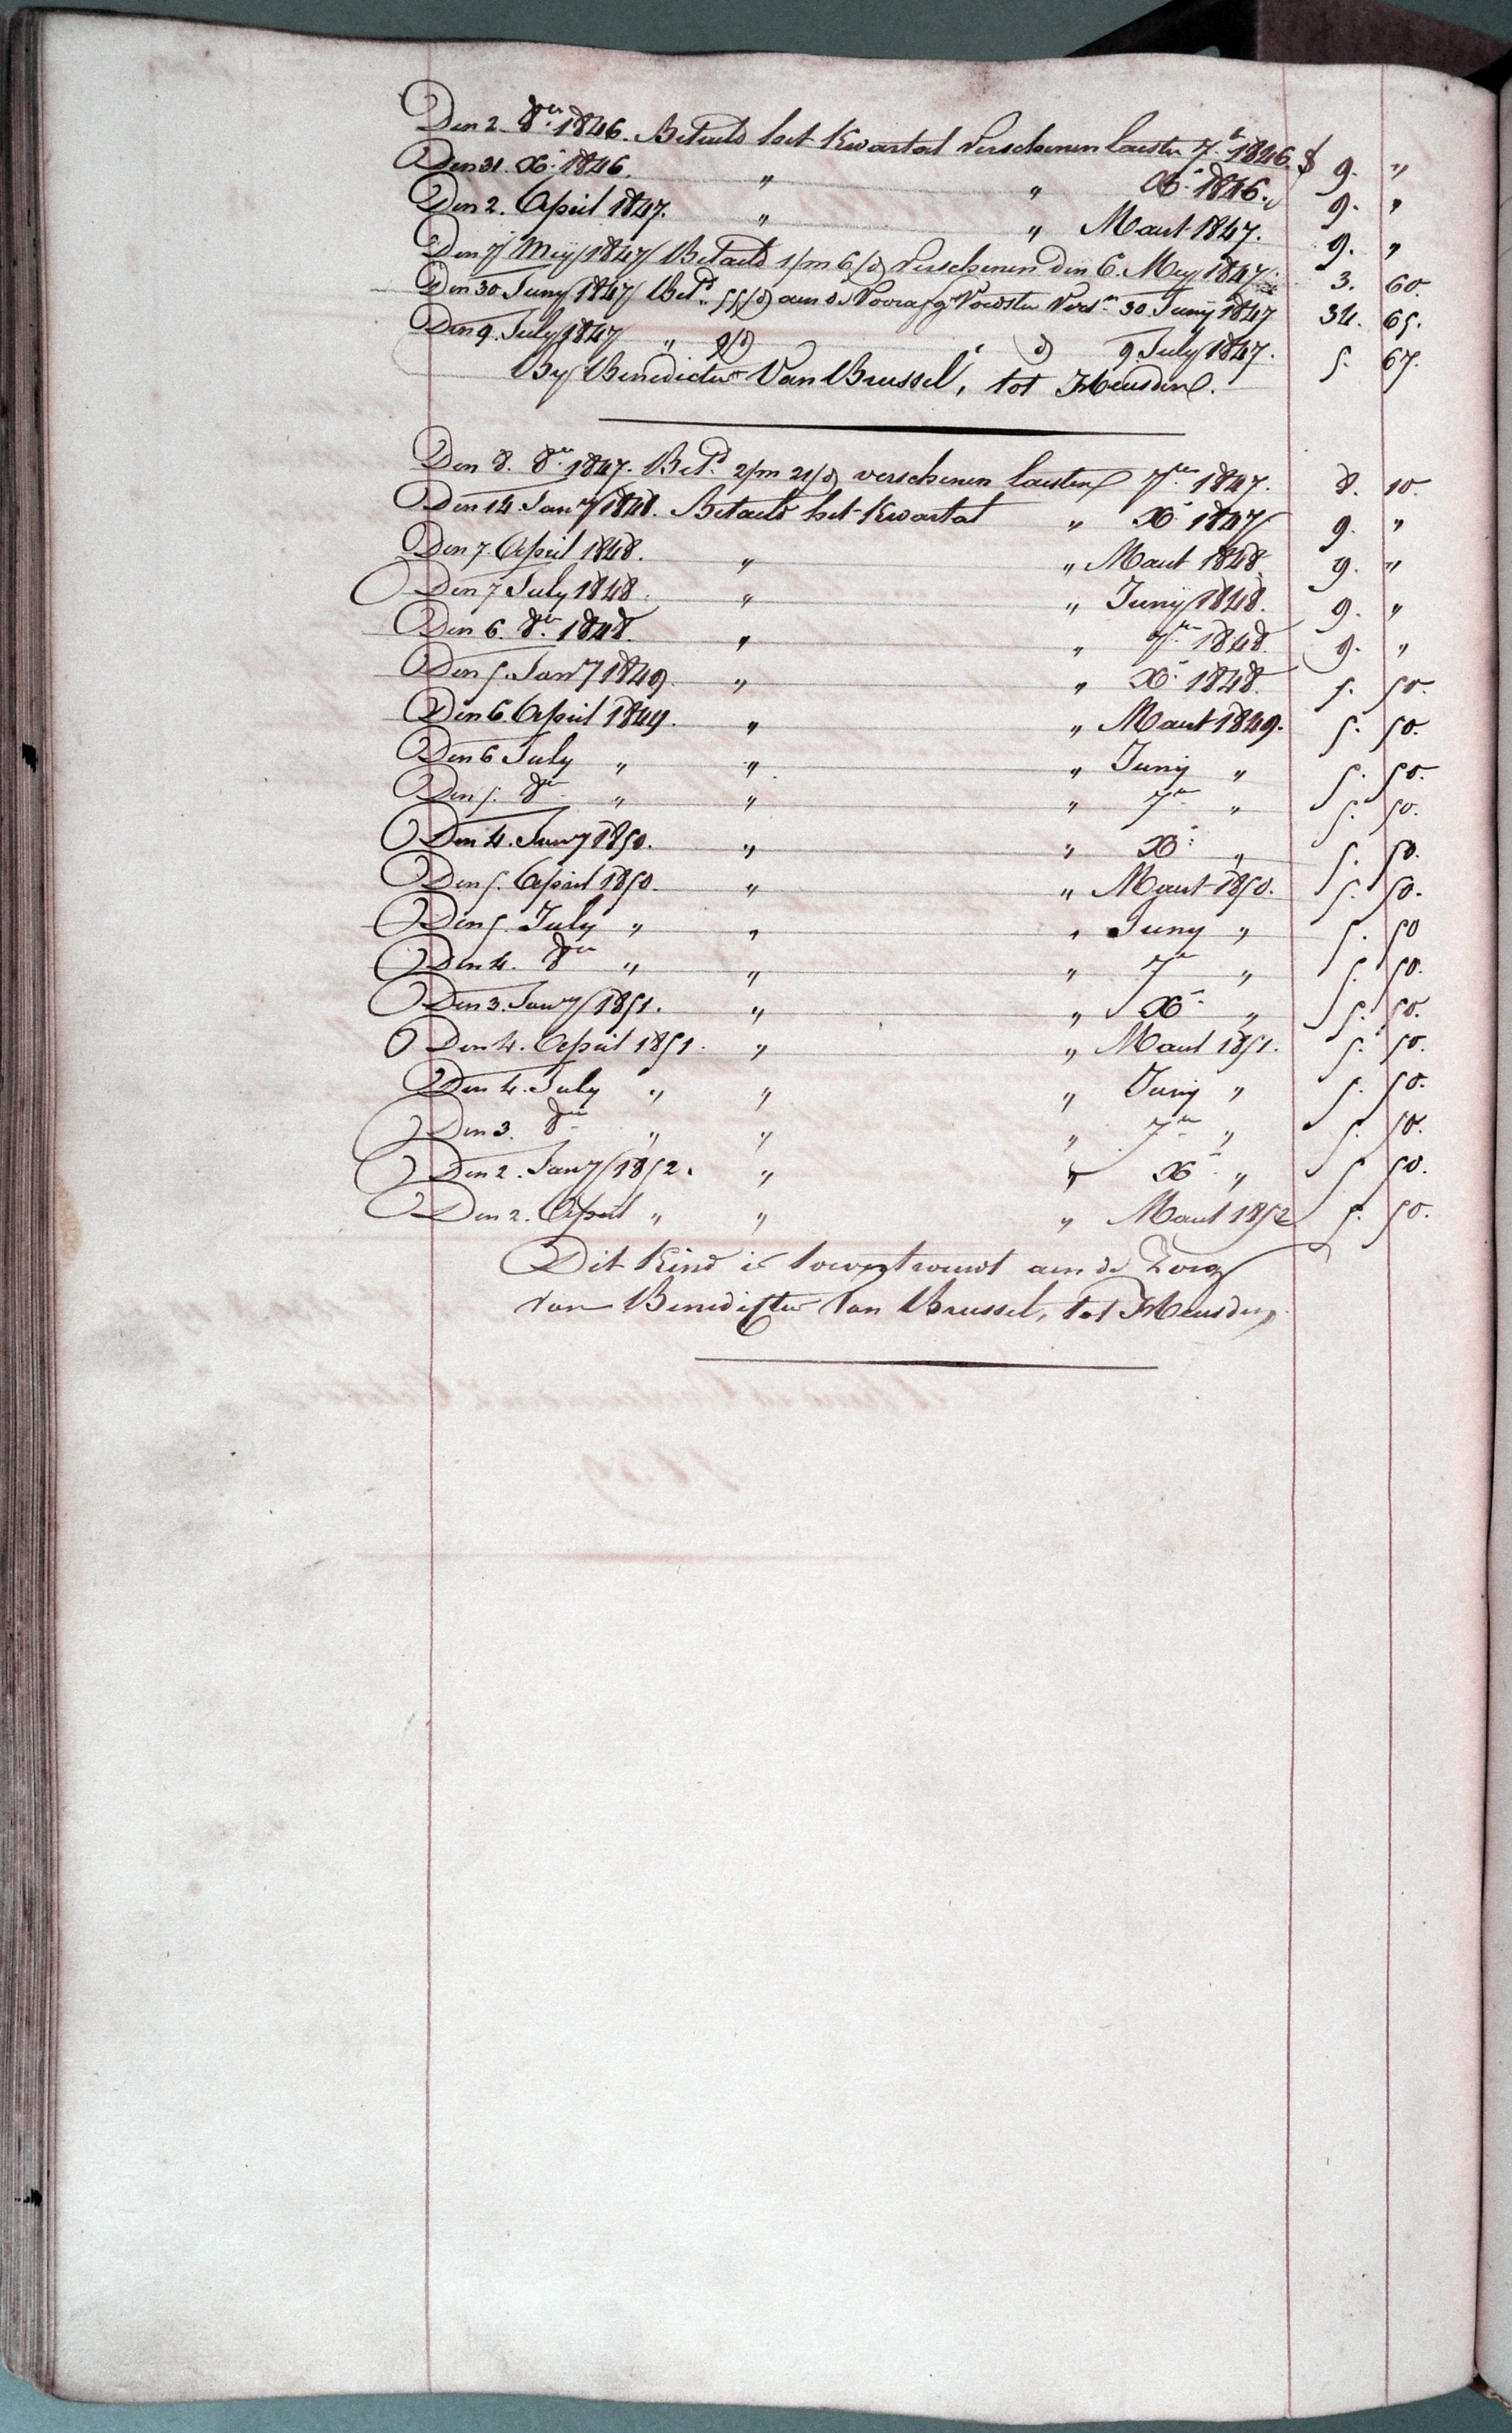 Den 2. 8er 1846. Betaeld het Kwartal Verschenen laesten 7r 1846 $ 9. "
Den 31. Xr 1846. " " Xr 1846. 9. "
Den 2. April 1847. " " Maart 1847. 9. "
Den 7 Meij 1847 Betaeld 1/m 6/d Verschenen den 6. Mey 1847. 3. 60.
Den 30 Juny 1847 Betd 55/d aen de Voorafg Voedster Versn 30 Junij 1847 34. 65.
Den 9. July 1847 " 9/d d 9 July 1847. 5. 67.
By Benedictus Van Brussel, tot Heusden.
Den 8. 8er 1847. Betd 2/m 21/d verschenen laesten 7er 1847. 8. 10.
Den 14 Jany 1848. Betaeld het Kwartal " Xr 1847 9. "
Den 7 April 1848. " " Maart 1848 9. "
Den 7 July 1848. " " Junij 1848. 9. "
Den 6. 8er 1848. " " 7er 1848. 9. "
Den 5. Jany 1849 " " Xr 1848. 5. 50.
Den 6. April 1849. " " Maart 1849. 5. 50.
Den 6 July " " " Junij " 5. 50.
Den 5. 8er " " " 7er " 5. 50.
Den 4. Jany 1850. " " Xr " 5. 50.
Den 5. April 1850. " " Maart 1850. 5. 50.
Den 5. July " " " Juny " 5. 50
Den 4. 8er " " " 7r " 5. 50.
Den 3. Jany 1851. " " Xr " 5. 50.
Den 4. April 1851. " " Maart 1851. 5. 50.
Den 4. July " " " Junij " 5. 50.
Den 3. 8er " " " 7er " 5. 50.
Den 2. Jany 1852. " " Xr " 5 50.
Den 2. April " " " Maart 1852 5. 50.
Dit Kind is toevertrouwt aen de Zorg
van Benedictus Van Brussel, tot Heusden